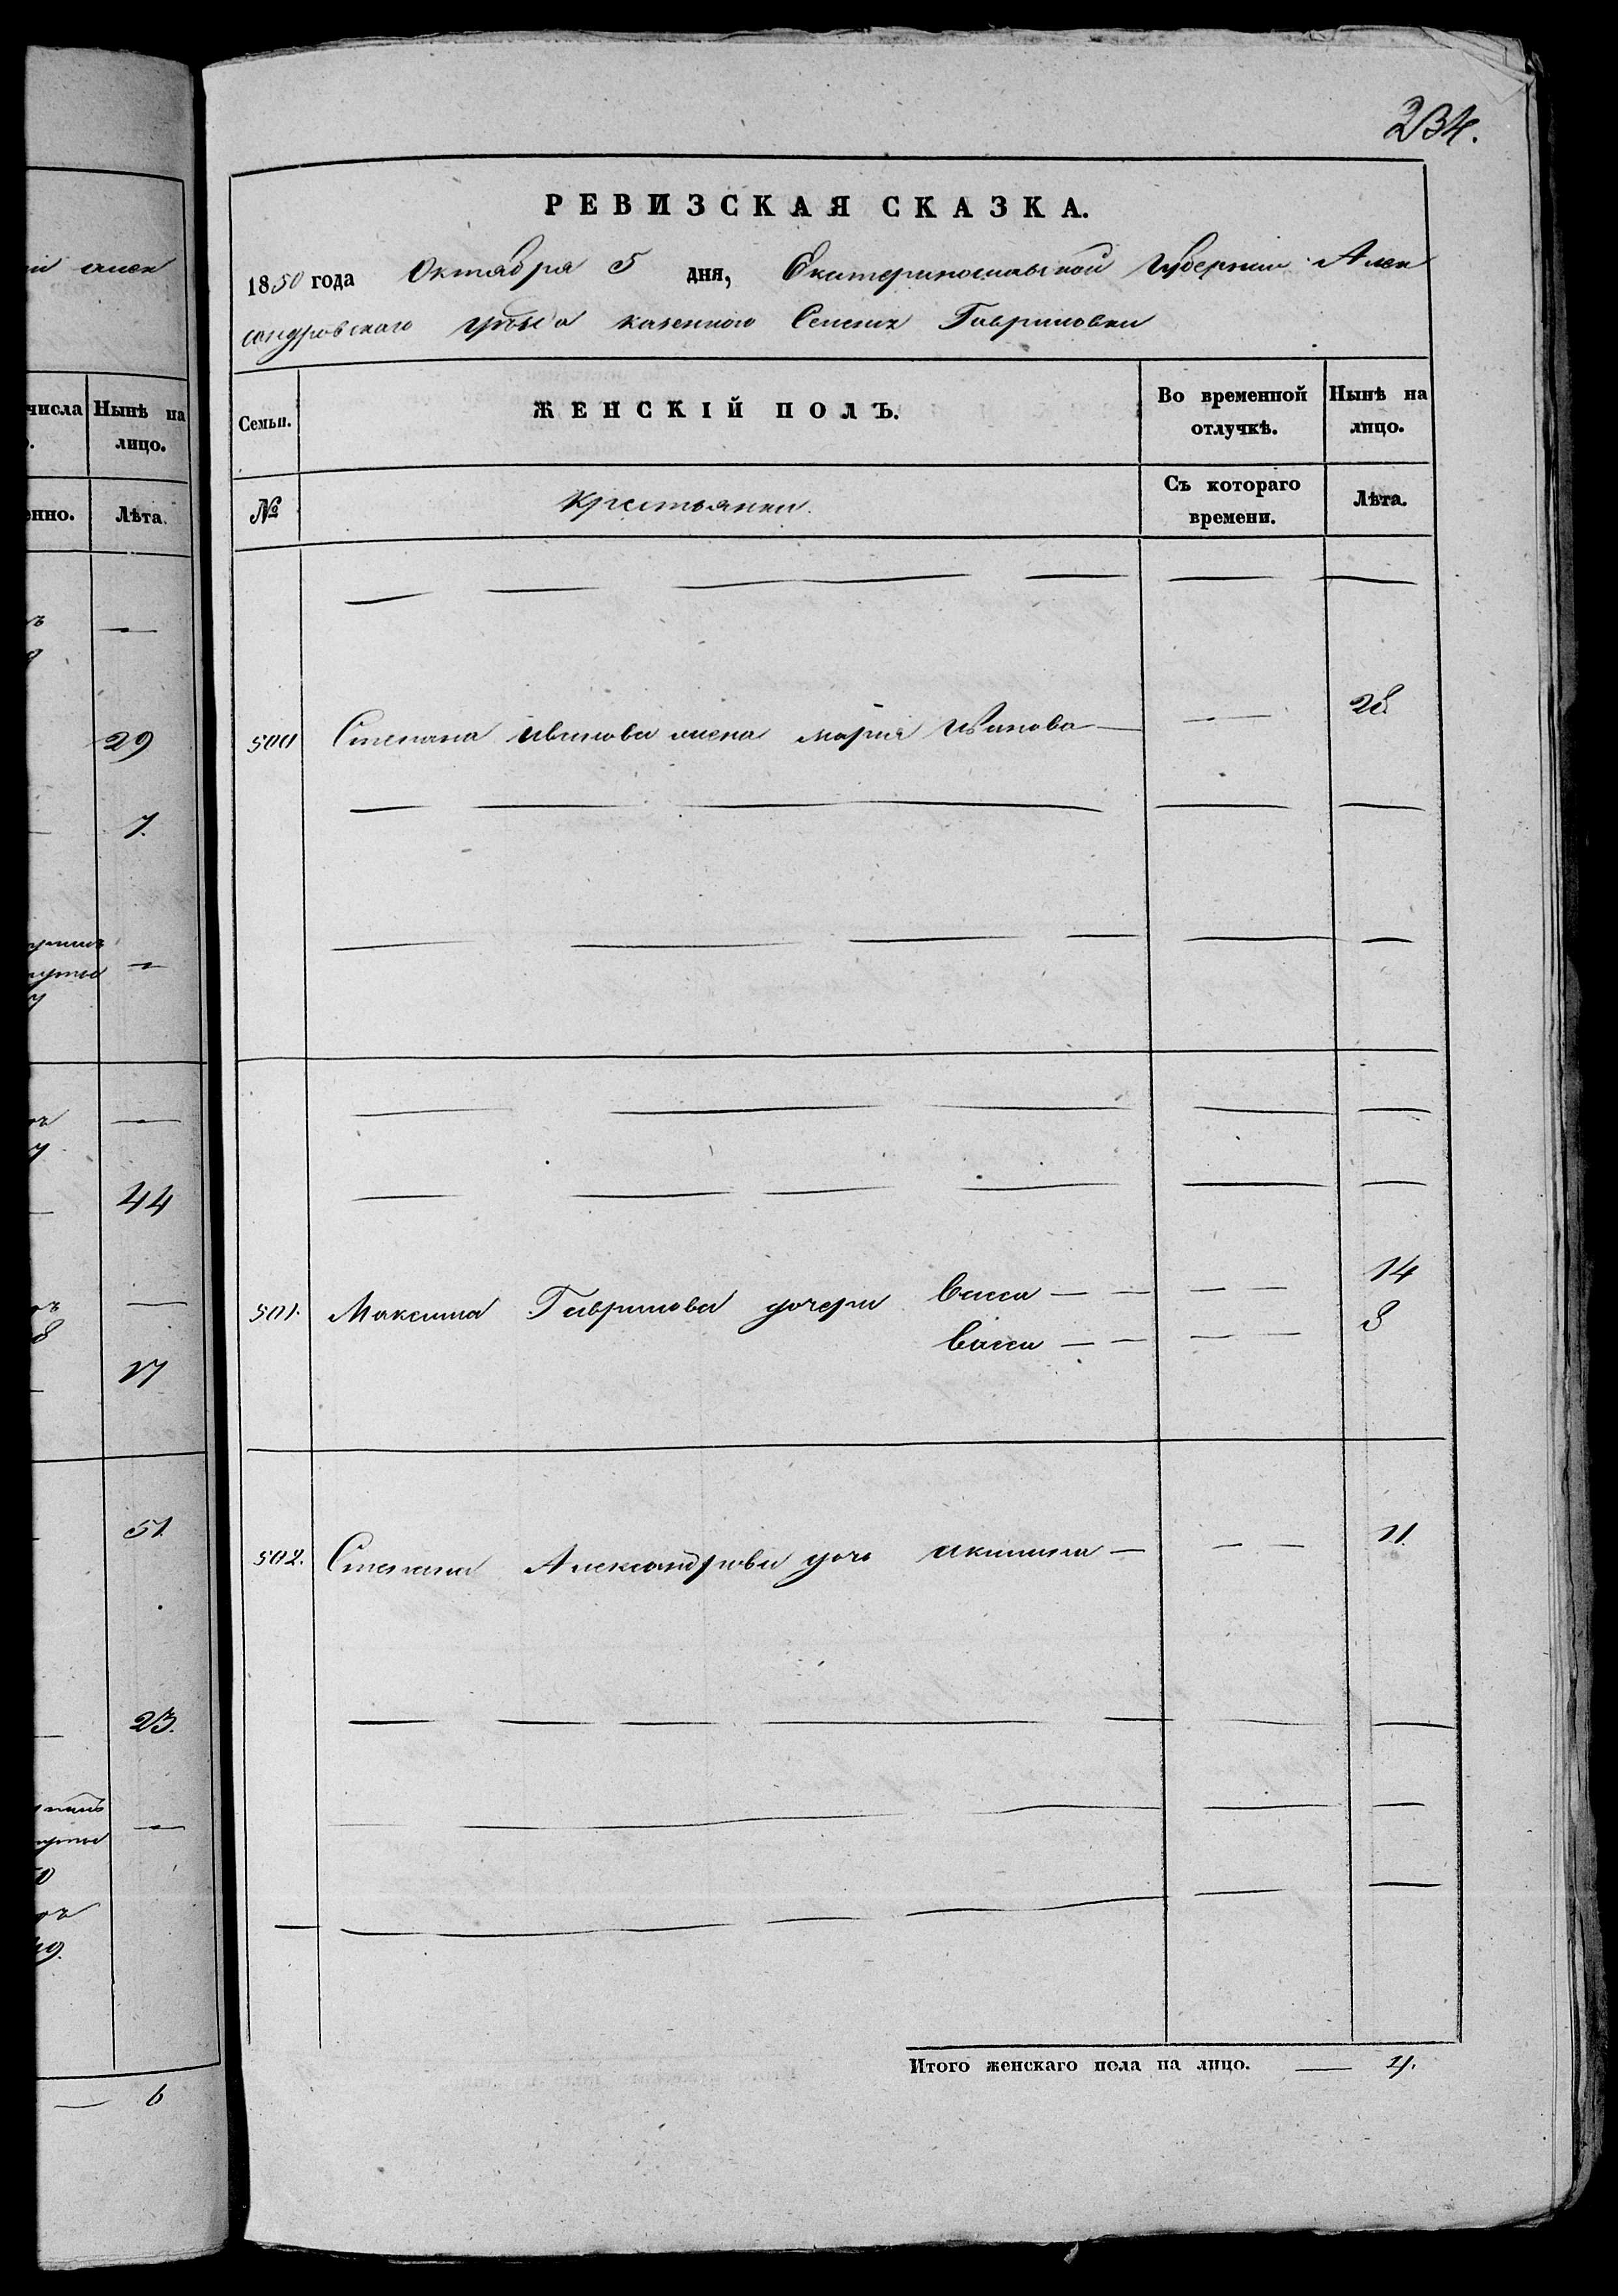 й алек
числа Нынѣ на
лицо.
Лѣта.
29
7.
44
17
51.
23.
49.
6
234.
РЕВИЗСКАЯ СКАЗКА.
1850 года Октября 5 дня, Екатеринославской Губернии Алек
сандровскаго уѣзда казеннаго Селенія Гавриловки
Семьи. ЖЕНСКІЙ ПОЛЪ. Во временной отлучкѣ. Нынѣ на лицо.
№ Крестьянки. Съ котораго времени. Лѣта.
500 Степана Иванова жена Марія Иванова — — 28
501. Максима Гаврилова дочери Васса — — — — 14
Васса — — — — 8
502. Степана Александрова дочь Акилина — — — 11.
Итого женскаго пола на лицо. — 4.